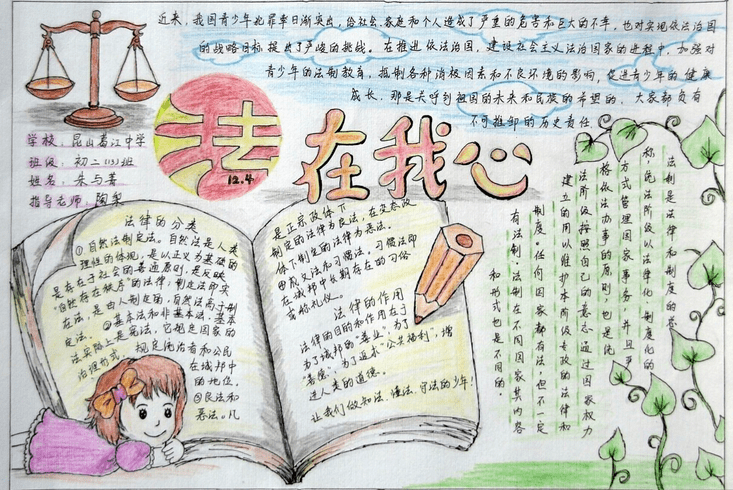 近来，我国青少年犯罪率日渐突出，给社会、家庭和个人造成了严重的危害和巨大的不幸，也对实现依法治国
的战略目标提出了严峻的挑战。在推进依法治国，建设社会主义法治国家的进程中，加强对
青少年的法制教育，抵制各种消极因素和不良环境的影响，促进青少年的健康
成长，那是关呼到祖国的未来和民族的希望的，大家都负有
不可推卸的历史责任
法在我心
12.4
学校：昆山葛江中学
班级：初二(13)班
姓名：朱与菁
指导老师：陶梨
法律的分类
①自然法制定法。自然法是人类
理性的体现，是以正义为基础的
是存在于社会的普遍原则，是反映
"自然存在秩序"的法律，制定法即实
在法，是由人制定的，自然法高于制
定法。②基本法和非基本法，基本
法实际上是宪法，它规定国家的
治理形式，规定统治者和公民
在城邦中
的地位。
③良法和
恶法。凡
是正宗政体下
制定的法律为良法，在变态政
体下制定的法律为恶法。
④成文法和习惯法。习惯法即
在城邦中长期存在的习俗
法律的作用
法律的目的和作用在于
为了城邦的"善业"，为了
为了追求"公共福利"，增
进人类的道德。
让我们做知法、懂法、守法的少年！
法制是法律和制度的总
称，统治阶级以法律化、制度化的
方式管理国家事务，并且严
格依法办事的原则，也是统
治阶级按照自己的意志通过国家权力
建立的用以维护本阶级专政的法律和
制度。任何国家都有法，但不一定
有法制，法制在不同国家其内容
和形式也是不同的。